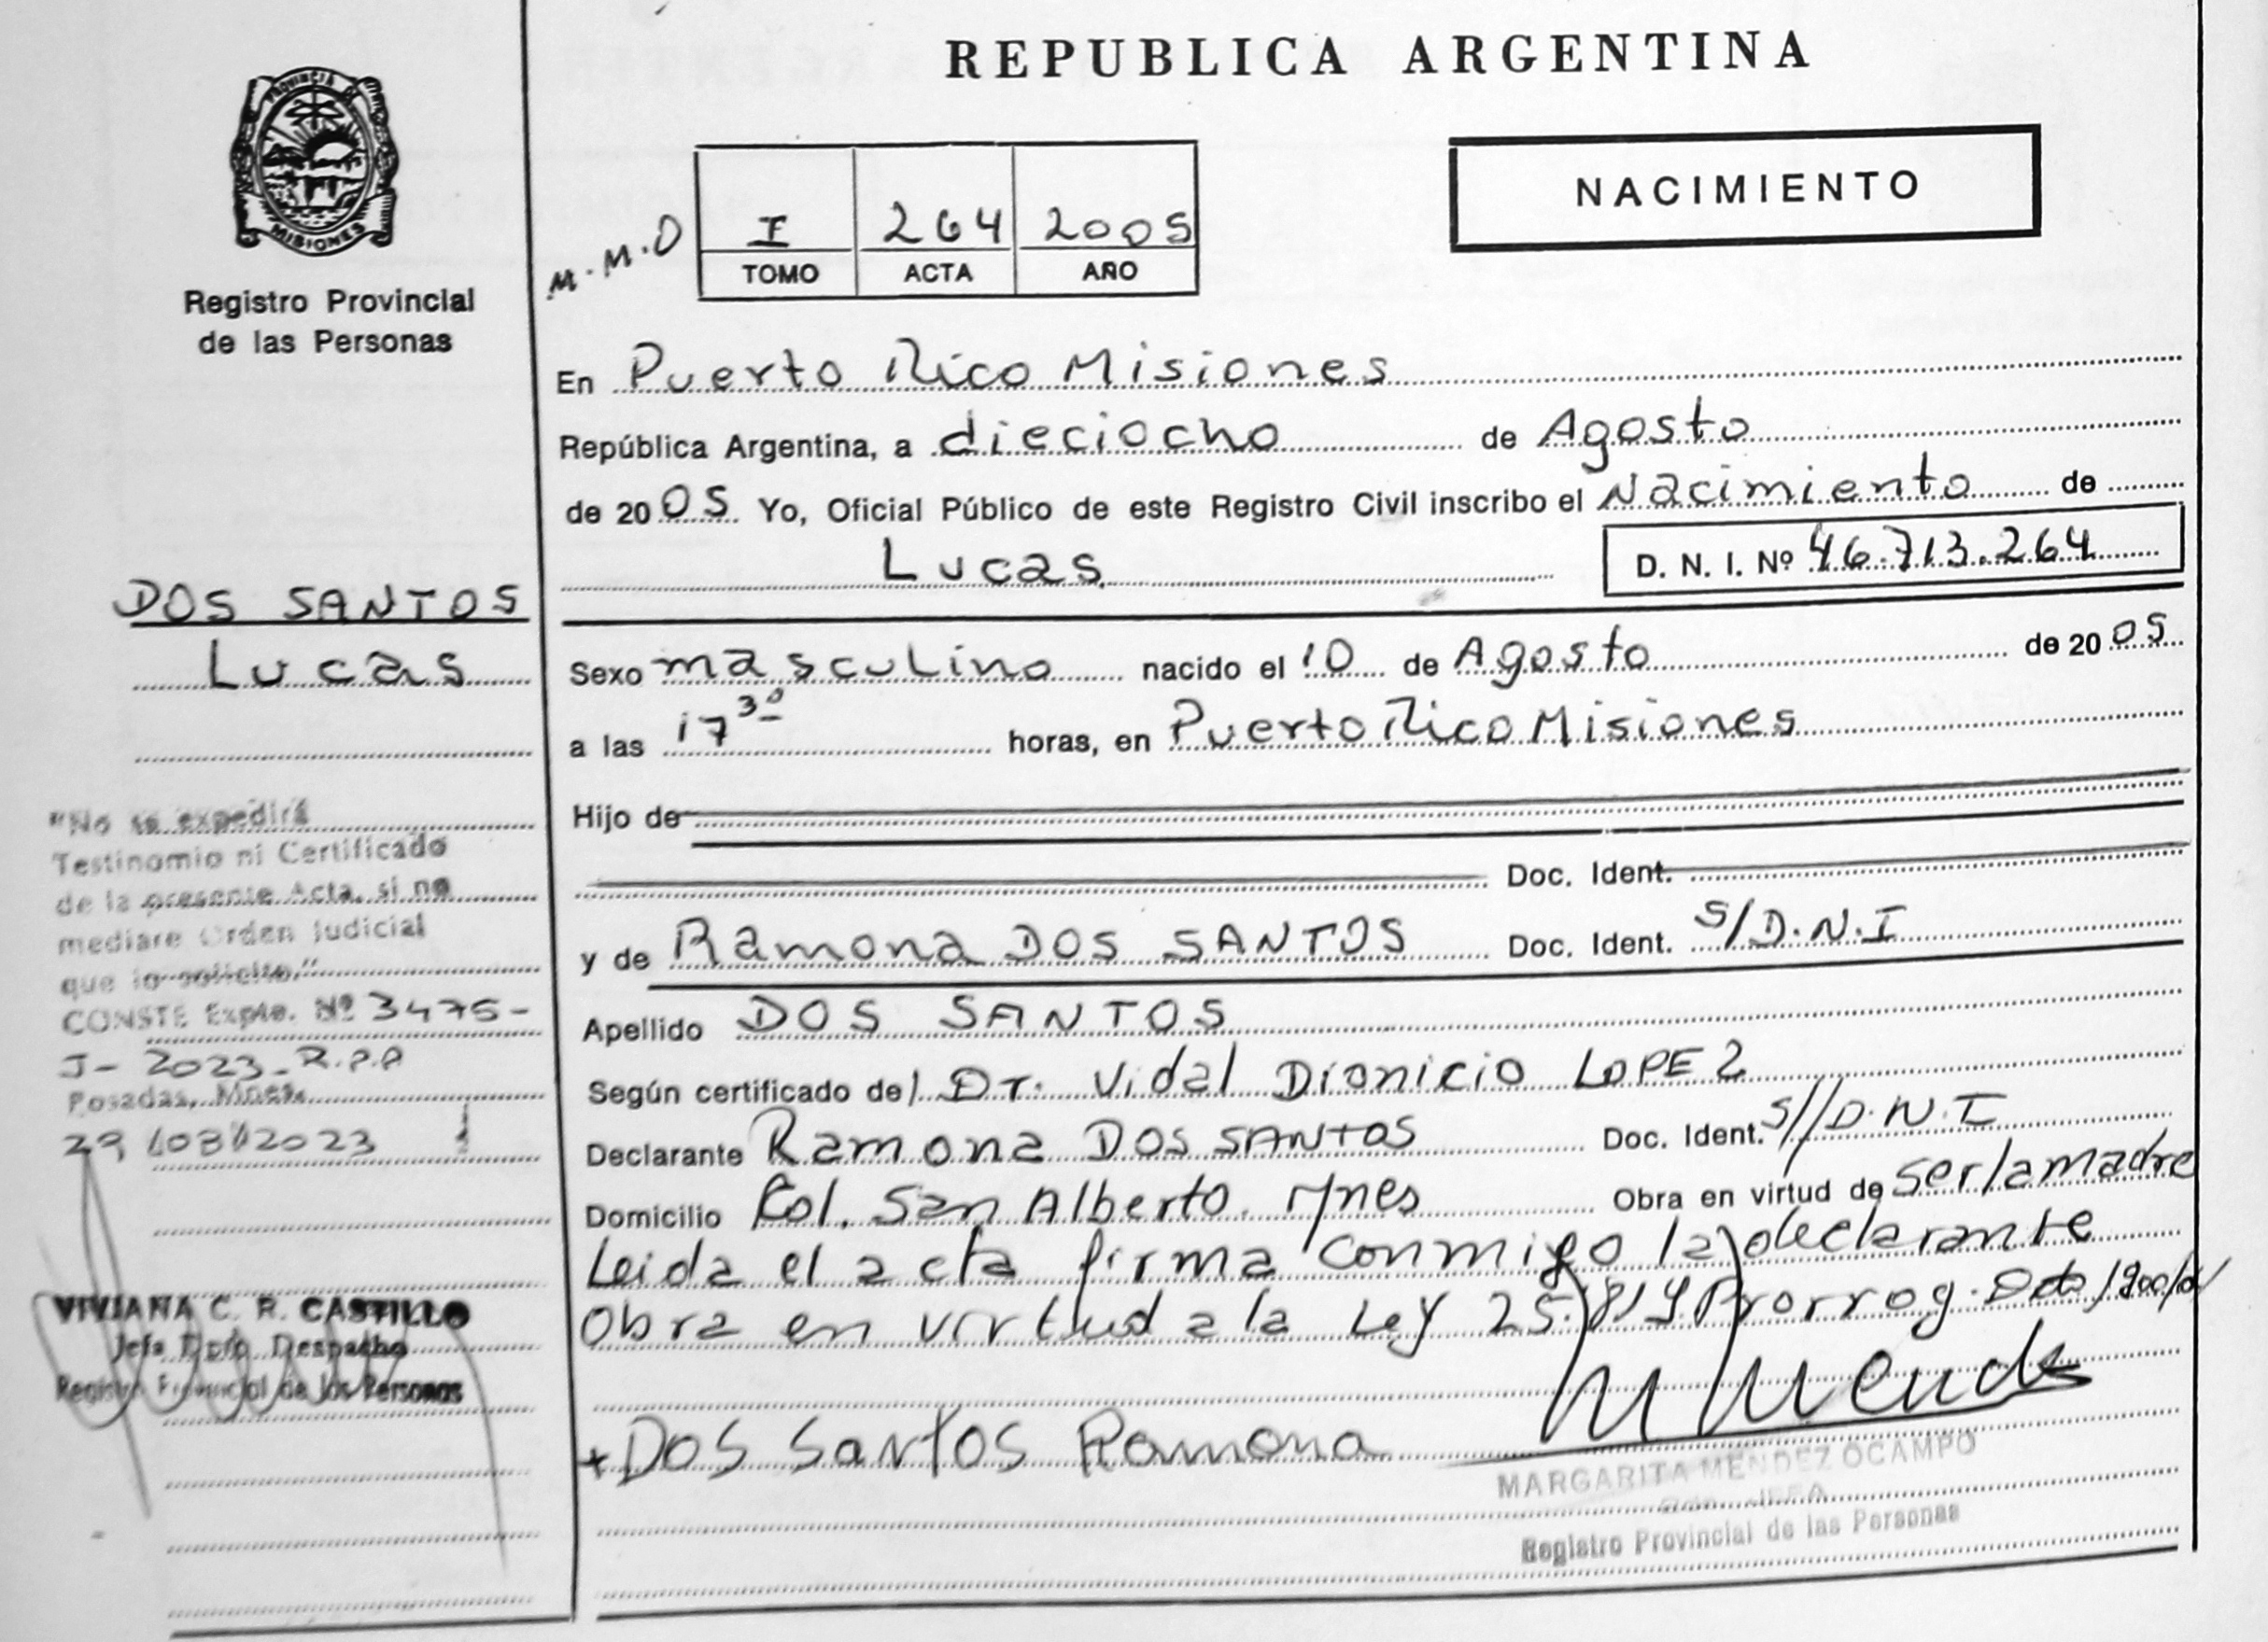 REPUBLICA ARGENTINA
PROVINCIA DE
MISIONES
Registro Provincial
de las Personas
M.M.O
I 264 2005
TOMO ACTA AÑO
NACIMIENTO
En Puerto Rico Misiones
República Argentina, a dieciocho de Agosto
de 2005 Yo, Oficial Público de este Registro Civil inscribo el Nacimiento de
Lucas
D. N. I. Nº 46.713.264
Sexo masculino nacido el 10 de Agosto de 2005
a las 17 30 horas, en Puerto Rico Misiones
Hijo de
Doc. Ident.
y de Ramona DOS SANTOS Doc. Ident. S/D.N.I
Apellido DOS SANTOS
Según certificado de/ Dr. Vidal Dionicio LOPEZ
Declarante Ramona DOS SANTOS Doc. Ident. S//D.N.I
Domicilio Col. San Alberto. Mnes Obra en virtud de ser la madre
Leida el acta firma conmigo la declarante
Obra en virtud a la Ley 25.819 Prorrog. Dto
+DOS SANTOS Ramona
MARGARITA MENDEZ OCAMPO
JEFA
Registro Provincial de las Personas
DOS SANTOS
Lucas
"No se expedirá
Testinomio ni Certificado
de la presente Acta, si no
mediare Orden Judicial
que lo solicite."
CONSTE Expte. Nº 3475-
J- 2023-R.P.P
Posadas, Mnes.
29/08/2023
VIVIANA C. R. CASTILLO
Jefa Dpto. Despacho
Registro Provincial de las Personas